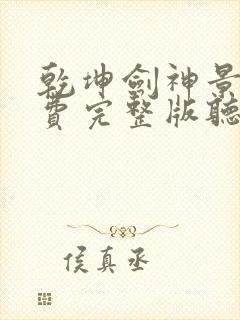 乾坤劍神景
費完整版聽
侯真丞